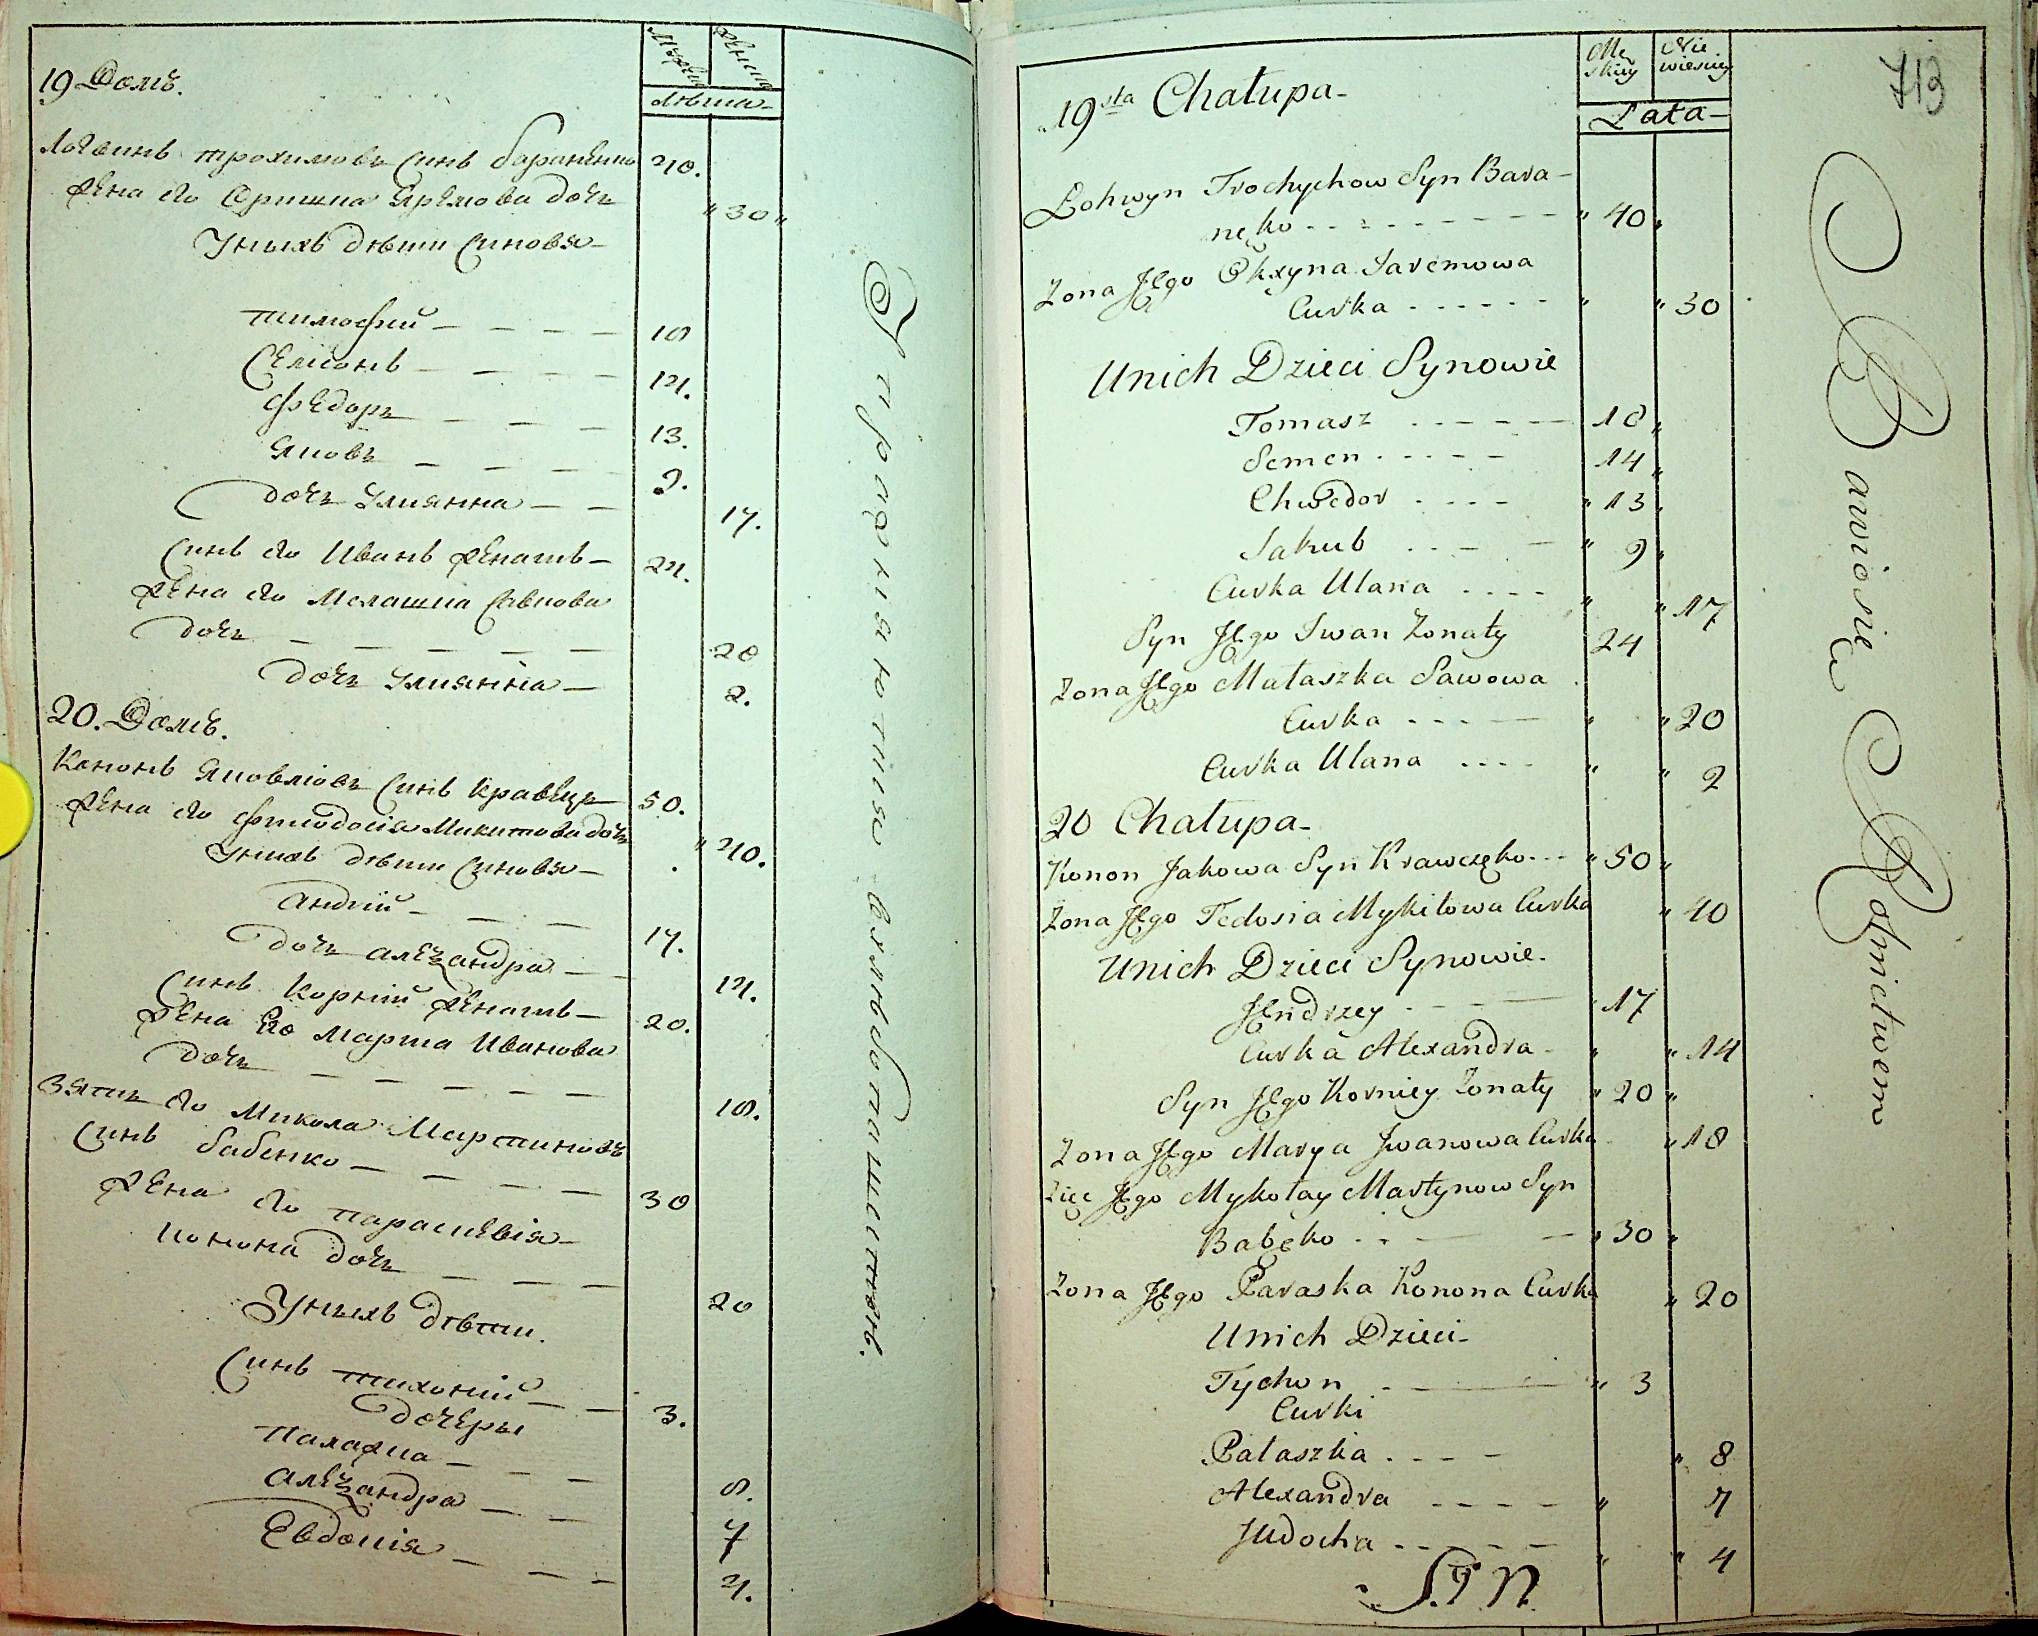 19 Домъ.
Мужеска
Женска
Лѣта
Логвинъ Трохимовъ Синъ Бараненко 40.
Жена его Оришка Яремова дочь "30"
Унихъ дѣти Синовя
Тимофий 18
Семіонъ 14.
Федоръ 13.
Яковъ 9.
дочь Улиянна 17.
Синъ его Иванъ женатъ 24.
Жена его Мелашка Савкова
дочь 20
дочь Улиянна 2.
20. Домъ.
Кононъ Яковліовъ Синъ Кравецъ 50.
Жена его Фтиодосія Микитова дочь "40.
Унихъ дѣти Синовя
Андій 17.
дочь Алеѯандра 14.
Синъ Корній женатъ 20.
Жена Его Марта Иванова
дочь 18.
Зять его Микола Мартиновъ
Синъ бабенко 30
Жена его Параскевія
Конона дочь 20
Унихъ дѣти.
Синъ Тихоній 3.
дочеры
Палажка 8.
Алеѯандра 7
Евдокія 4.
Упражняютця вхлѣбопашествѣ.
713
Męskiey
Niewieściey
Lata
19sta Chałupa
Łohwyn Trochychow Syn Bara-
nęko " 40 "
Zona Jego Okxyna Jaremowa
Curka " " 30
Unich Dzieci Synowie
Tomasz 18 "
Semen 14 "
Chwedor " 13 "
Jakub " 9 "
Curka Ulana " " 17
Syn Jego Iwan Zonaty 24
Zona Jego Małaszka Sawowa
Curka " " 20
Curka Ulana " " 2
20 Chałupa
Konon Jakowa Syn Krawczęko " 50 "
Zona Jego Fedosia Mykitowa Curka " 40
Unich Dzieci Synowie
Jendrzey " 17
Curka Alexandra " " 14
Syn Jego Korniey Zonaty " 20 "
Zona Jego Marya Jwanowa Curka " 18
Zięc Jego Mykołay Martynow Syn
Babęko " 30 "
Zona Jego Paraska Konona Curka " 20
Unich Dzieci
Tychon " 3
Curki
Pałaszka " 8
Alexandra " 7
Judocha " " 4
Bawiosię Rolnictwem